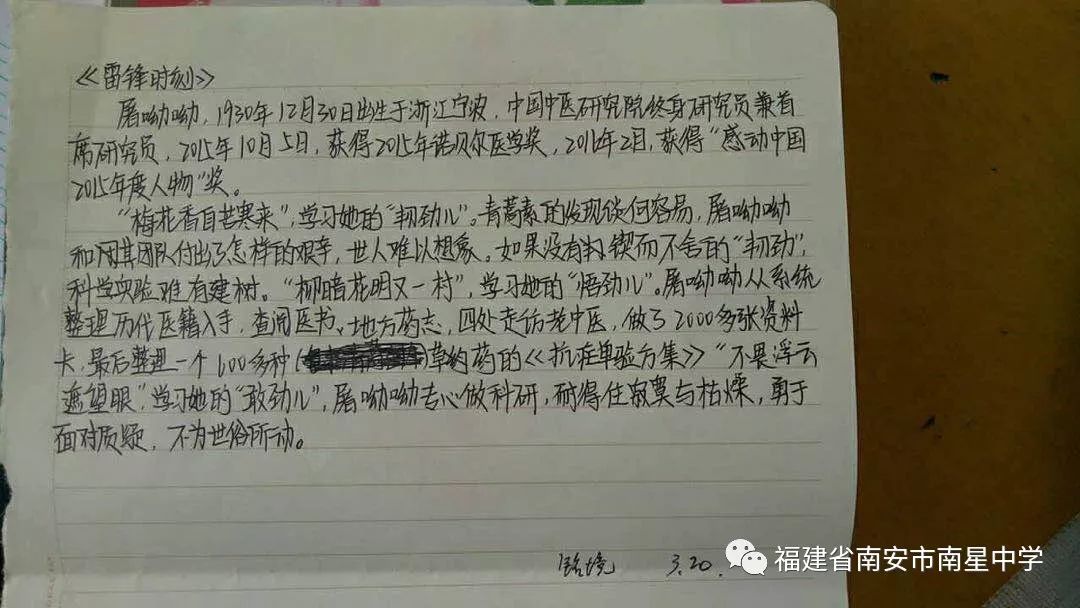 《雷锋时刻》
屠呦呦，1930年12月30日出生于浙江宁波，中国中医研究院终身研究员兼首
席研究员，2015年10月5日，获得2015年诺贝尔医学奖，2016年2月，获得“感动中国
2015年度人物”奖。
“梅花香自苦寒来”，学习她的“韧劲儿”。青蒿素的发现谈何容易，屠呦呦
和其团队付出了怎样的艰辛，世人难以想象。如果没有锲而不舍的“韧劲”，
科学实验难有建树。“柳暗花明又一村”，学习她的“悟劲儿”。屠呦呦从系统
整理历代医籍入手，查阅医书、地方药志，四处走访老中医，做了2000多张资料
卡，最后整理一个600多种（草药的《抗疟单验方集》“不畏浮云
遮望眼”，学习她的“敢劲儿”，屠呦呦专心做科研，耐得住寂寞与枯燥，勇于
面对质疑，不为世俗所动。
3.20.
福建省南安市南星中学